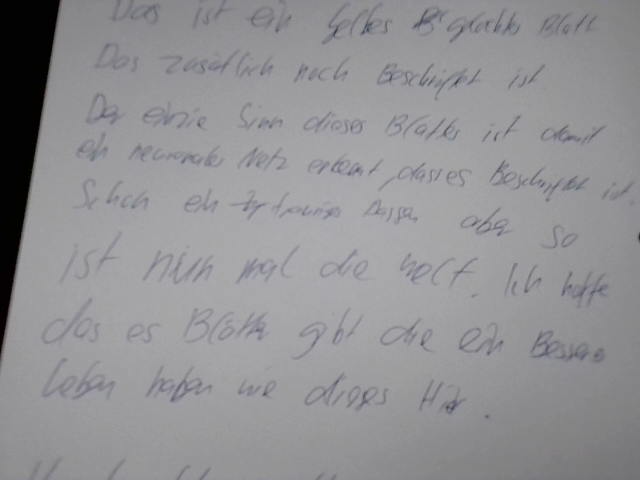 Das ist ein gelbes Blatt
Das zusätlich noch Beschriftet ist
Der einzie Sinn dieses Blattes ist damit
ein neuronales Netz erkennt, dass es Beschriftet ist.
Schon ein trauriges aber so
ist nun mal die Welt. Ich hoffe
das es Blätter gibt die ein Besseres
leben haben wie dieses Hier.